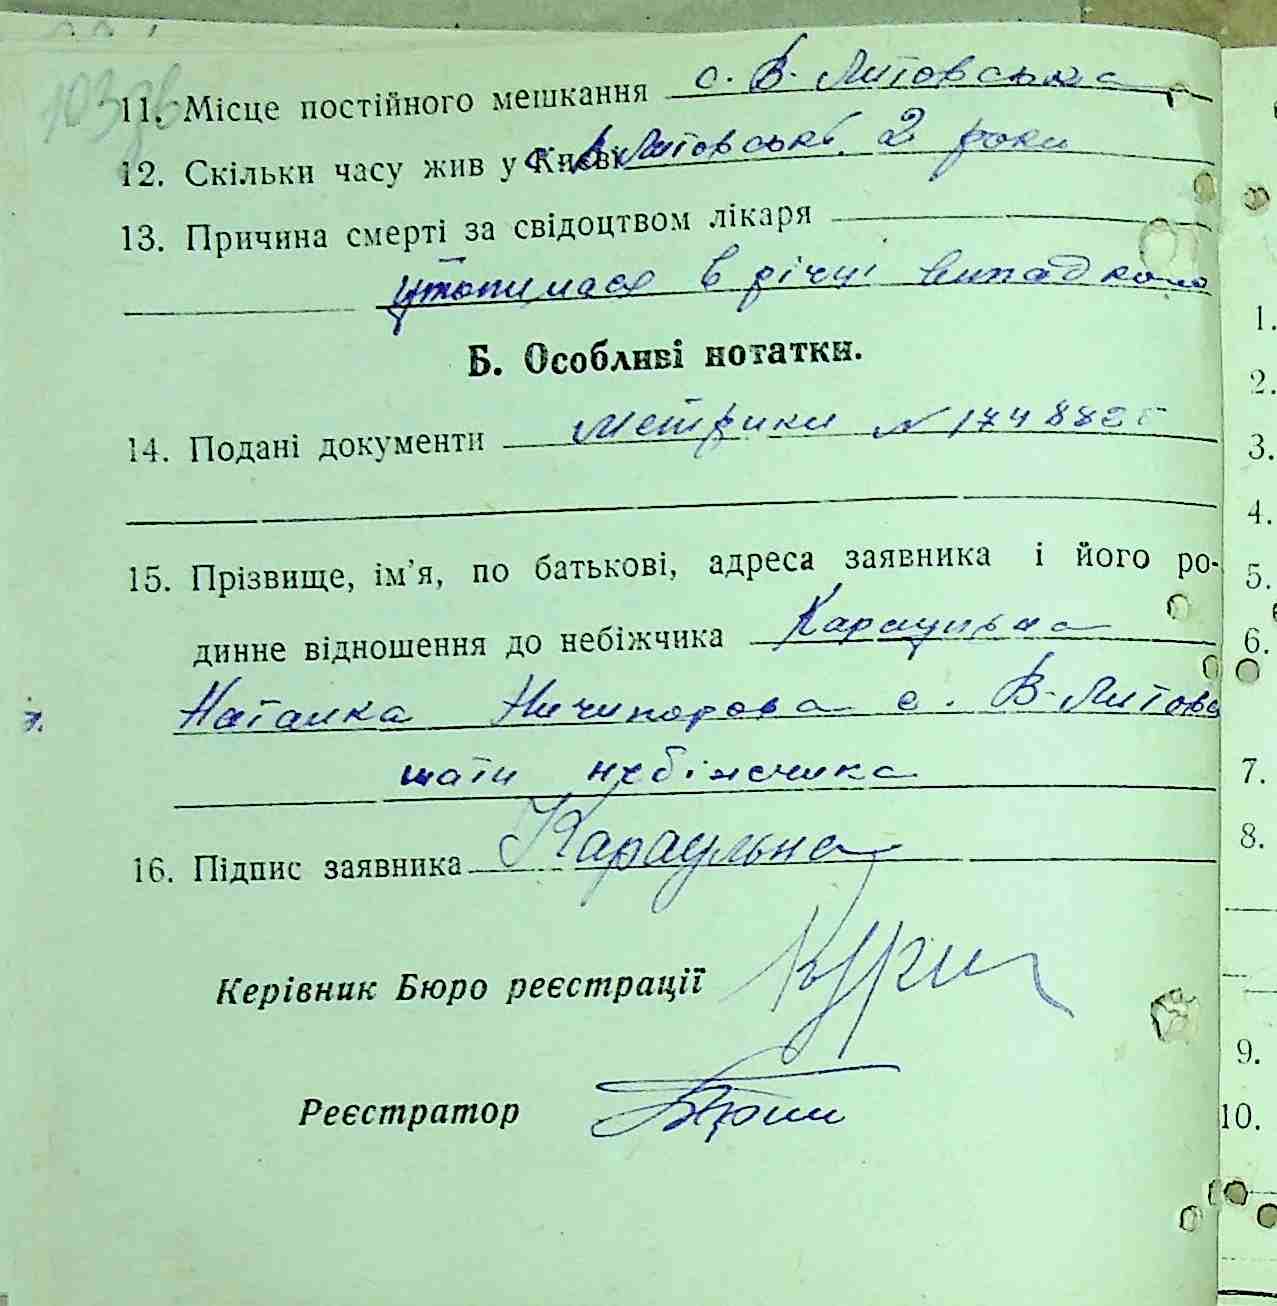 103 зв
11. Місце постійного мешкання с. В. Литовська
12. Скільки часу жив у Києві Литовські 2 роки
13. Причина смерті за свідоцтвом лікаря
утопилася в річці випадково
Б. Особливі нотатки.
14. Подані документи Метрики № 174882
15. Прізвище, ім'я, по батькові, адреса заявника і його ро-
динне відношення до небіжчика Караульна
Наталка Ничипорова с. В-Литовс
мати небіжчика
16. Підпис заявника Караульна
Керівник Бюро реєстрації
Реєстратор
1.
2.
3.
4.
5.
6.
7.
8.
9.
10.